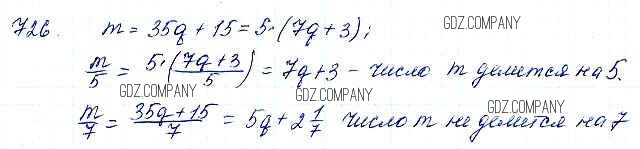 726. m = 35q + 15 = 5·(7q + 3);
GDZ.COMPANY
GDZ.COMPANY
m/5 = 5·(7q + 3)/5 = 7q + 3 – число m делится на 5.
GDZ.COMPANY
GDZ.COMPANY
GDZ.COMPANY
m/7 = 35q + 15/7 = 5q + 2 1/7 число m не делится на 7